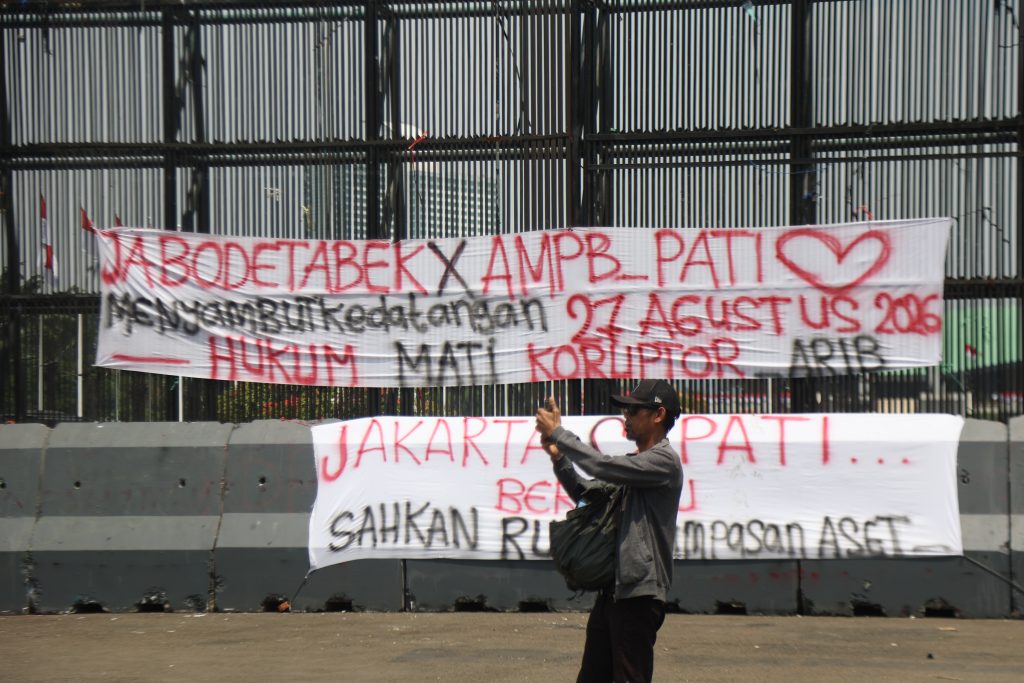 JABODETABEK X AMPB_PATI
MENYAMBUT KEDATANGAN 27 AGUSTUS 2026
HUKUM MATI KORUPTOR ARIB
JAKARTA PATI...
SAHKAN ASET